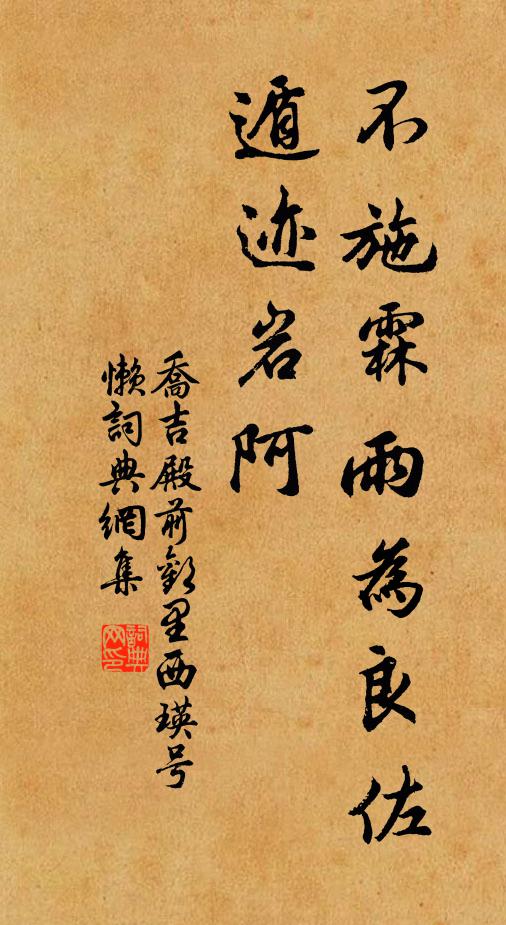 不施霖雨為良佐
遁迹岩阿
喬吉殿前歡里西瑛号
懒詞典網集
詞典网印